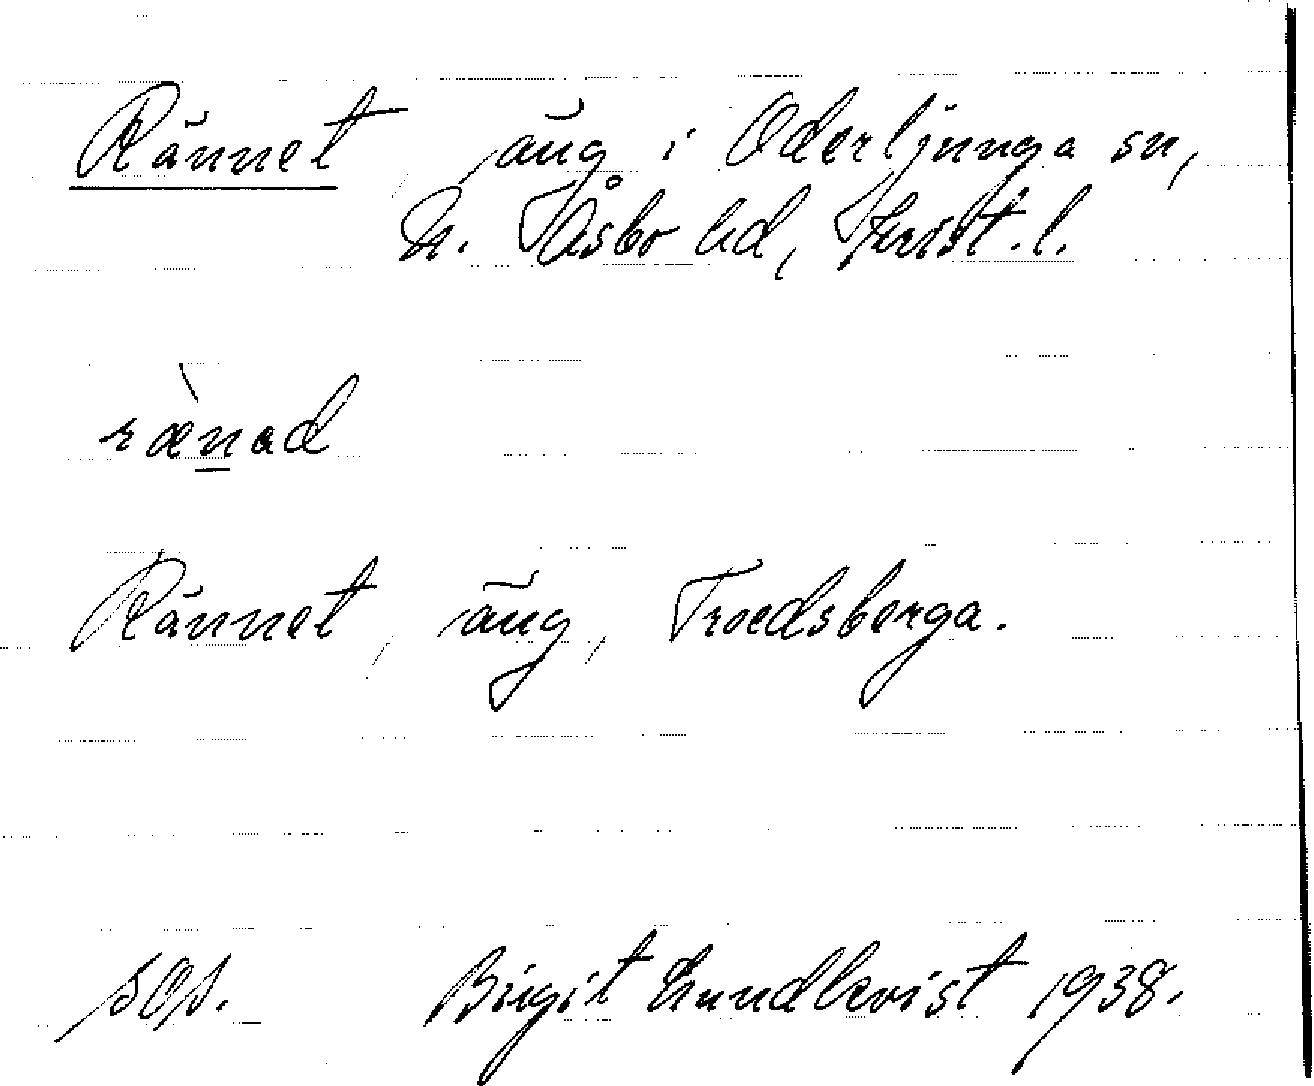 Rännet, äng i Oderljunga sn,
N. Åsbo hd, Krist. l.
rænad
Rännet, äng, Troedsberga.
Birgit Lundkvist 1938.